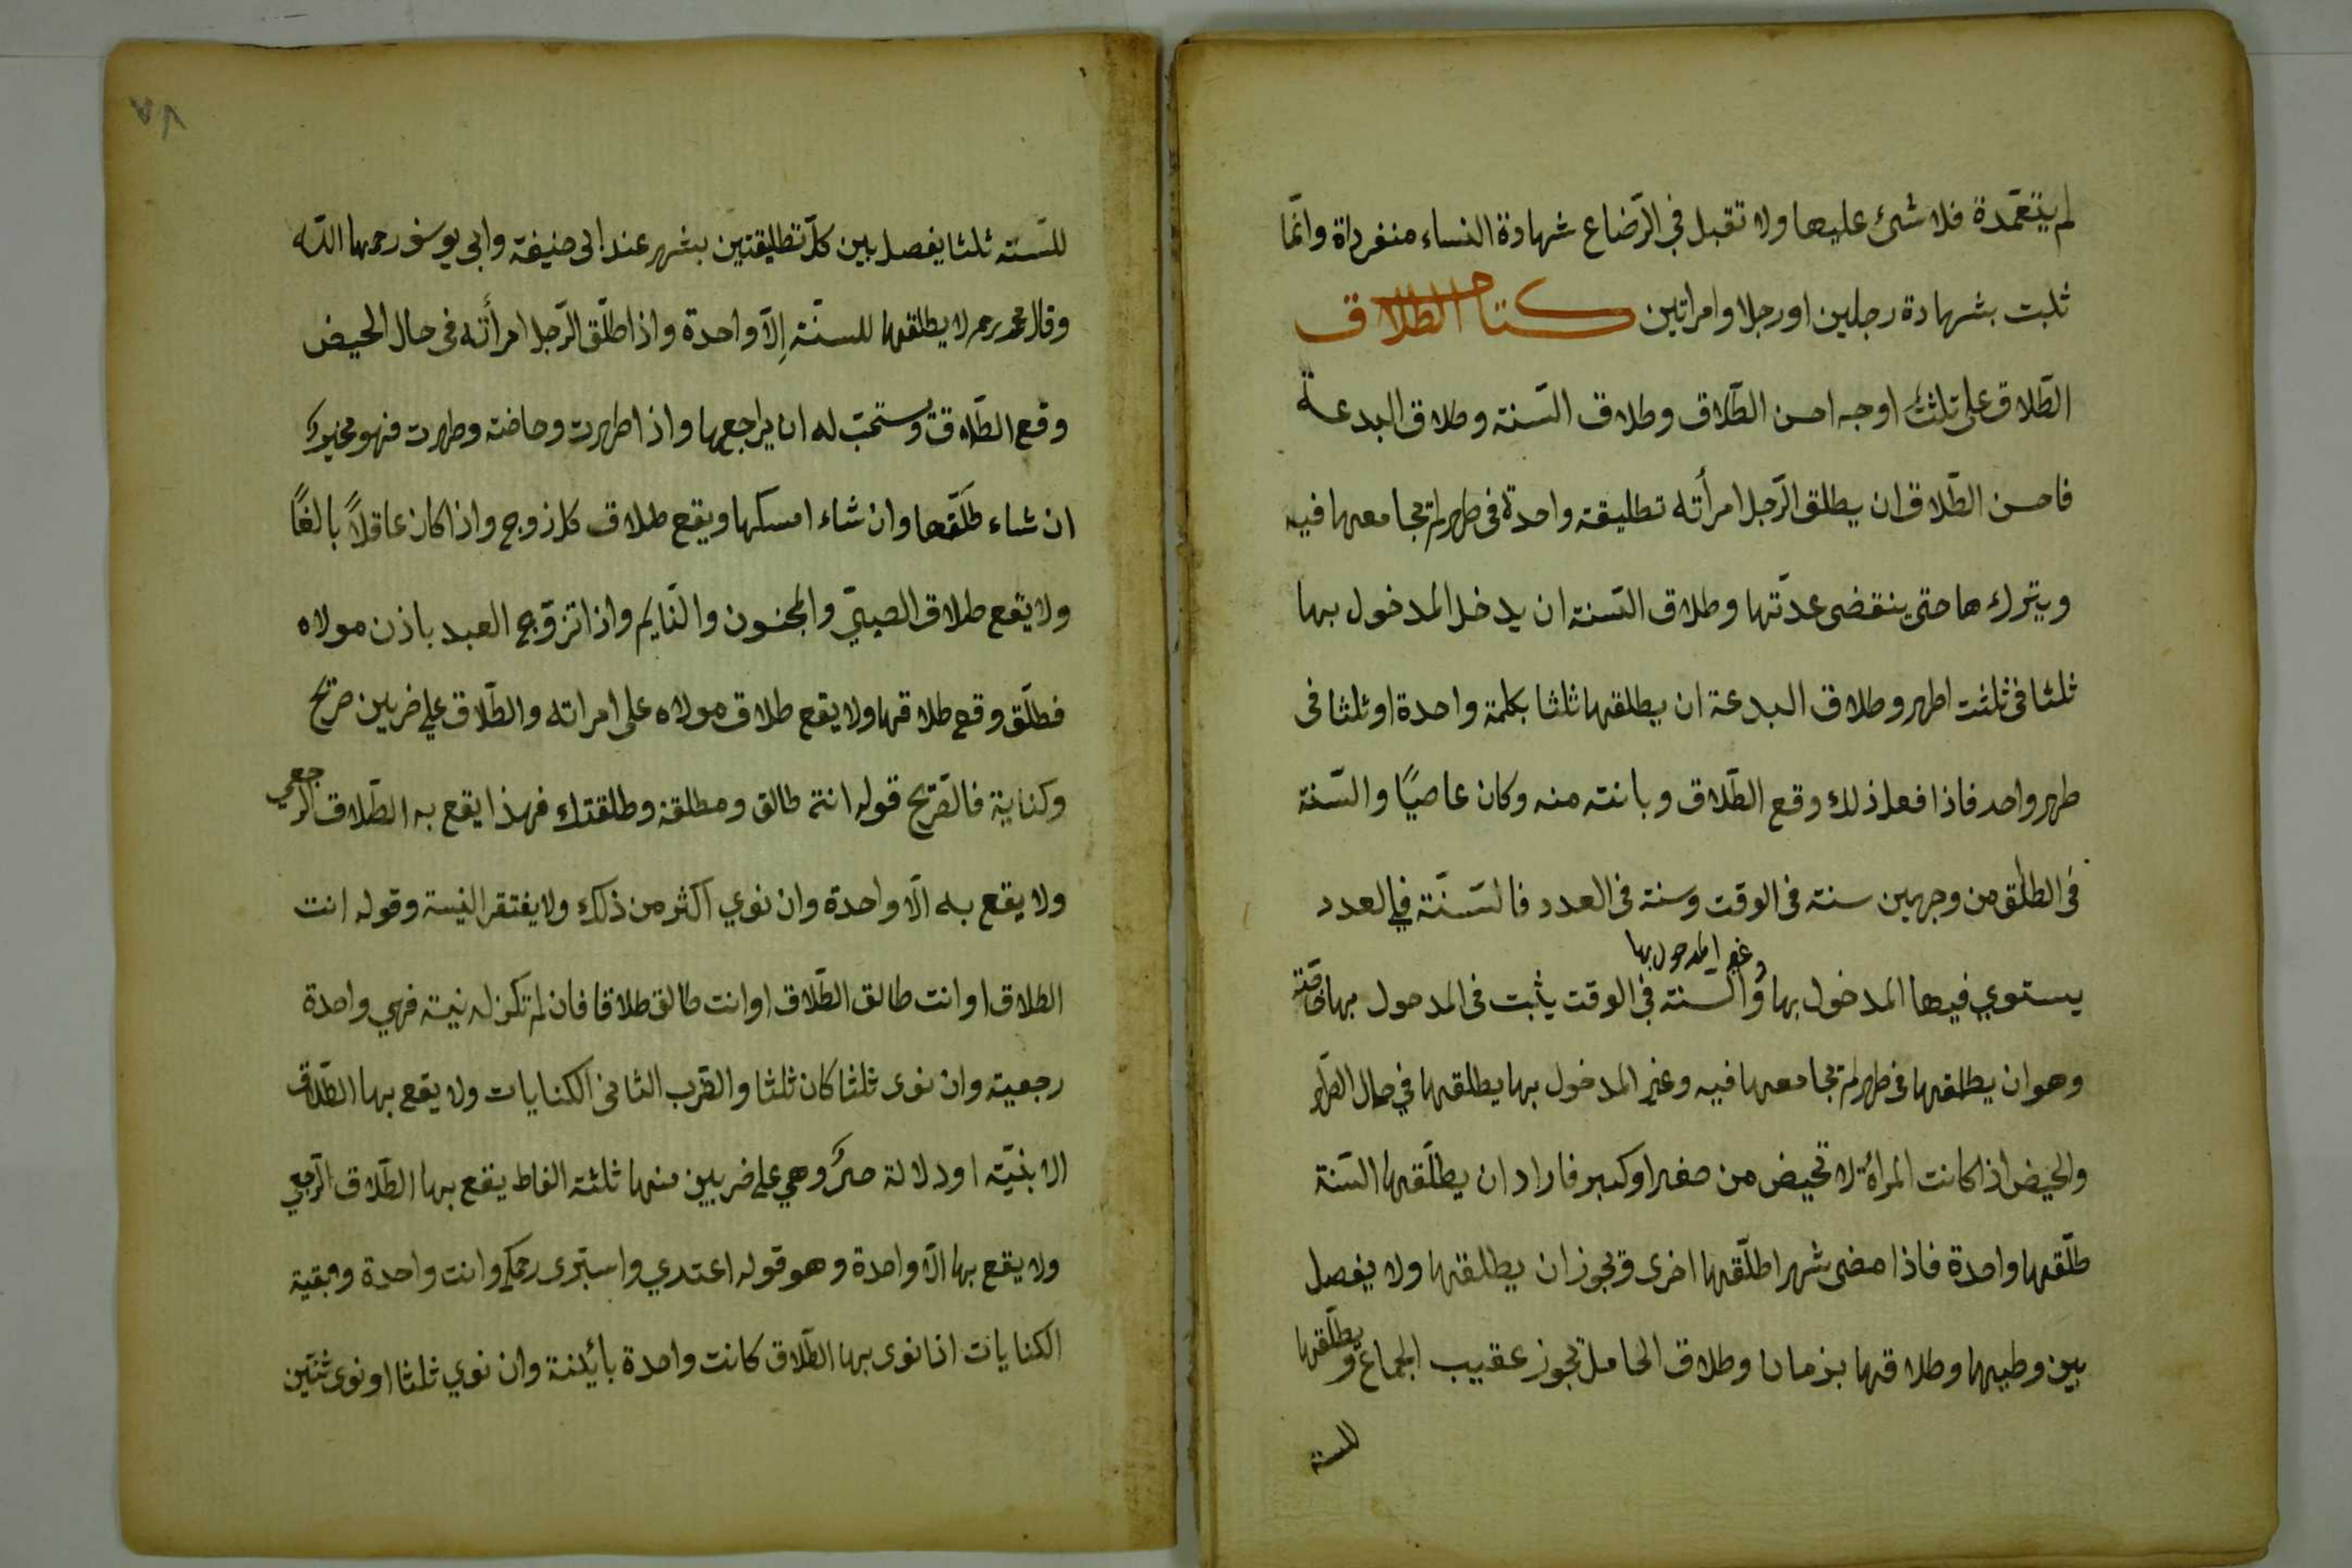 لم يتعمّدة فلا شئ عليها ولا تقبل في الرّضاع شهادة النساء منفرداة وانّما
ثلبت بشهادة رجلين او رجلا وامراتين كتاب الطلاق
الطّلاق على ثلثة اوجه احسن الطّلاق وطلاق السّنة وطلاق البدعة
فاحسن الطّلاق ان يطلق الرّجل امرأته تطليقة واحدة فى طهر لم يجامعها فيه
ويتركها حتى ينقضى عدتّها وطلاق السّنة ان يدخل المدخول بها
ثلثا فى ثلثت اطهر وطلاق البدعة ان يطلقها ثلثا بكلمة واحدة او ثلثا فى
طهر واحد فاذا فعل ذلك وقع الطّلاق وبانته منه وكان عاصيًا والسّنة
فى الطلق من وجهين سنة فى الوقت وسنة فى العدد فالسّنّة في العدد
يستوي فيها المدخول بها وغير المدخول بها والسنة في الوقت يثبت فى المدحول بها خاصّة
وهو ان يطلقها فى طهر لم يجامعها فيه وغير المدخول بها يطلقها في حال الطّهر
والحيض اذا كانت المرأة لا تحيض من صغر او كبر فاراد ان يطلّقها السّنة
طلّقها واحدة فاذا مضى شهر اطلّقها اخرى ويجوز ان يطلقها ولا يفصل
بين وطيها وطلاقها بزمان وطلاق الحامل تجوز عقيب الجماع ويطلّقها
للسنة
٧٨
للسّنة ثلثا يفصل بين كلّ تطليقتين بشهر عند ابى حنيفة وابى يوسف رحمهما اللّه
وقال محمد رحمه لا يطلقها للسنّة إلّا واحدة واذا طلّق الرّجل امرأته فى حال الحيض
وقع الطّلاق ويستحبّ له ان يراجعها واذا طهرت وحاضت وطهرت فهو مخيرك
ان شاء طلّقها وان شاء امسكها ويقع طلاق كل زوج واذا كان عاقلاً بالغًا
ولا يقع طلاق الصبيّ والمجنون والنّايم واذا تزوّج العبد باذن مولاه
فطلّق وقع طلاقها ولا يقع طلاق مولاه على امراته والطّلاق على ضربين صريح
وكناية فالصّريح قوله انت طالق ومطلقة وطلقتك فهذا يقع به الطّلاق الرّجعي
ولا يقع به الّا واحدة وان نوي اكثر من ذلك ولا يفتقر النيّة وقوله انت
الطلاق او انت طالق الطّلاق او انت طالق طلاقا فان لم تكن له نيّة فهي واحدة
رجعية وان نوى ثلثا كان ثلثا والضّرب الثانى الكنايات ولا يقع بها الطّلاق
الا بنيّة او دلالة وهي على ضربين منها ثلثة الفاط يقع بها الطّلاق الرّجعي
ولا يقع بها الّا واحدة وهو قوله اعتدي واستبرى رحمك وانت واحدة وبقية
الكنايات اذا نوى بها الطّلاق كانت واحدة بائنة وان نوي ثلثا او نوى ثنتين